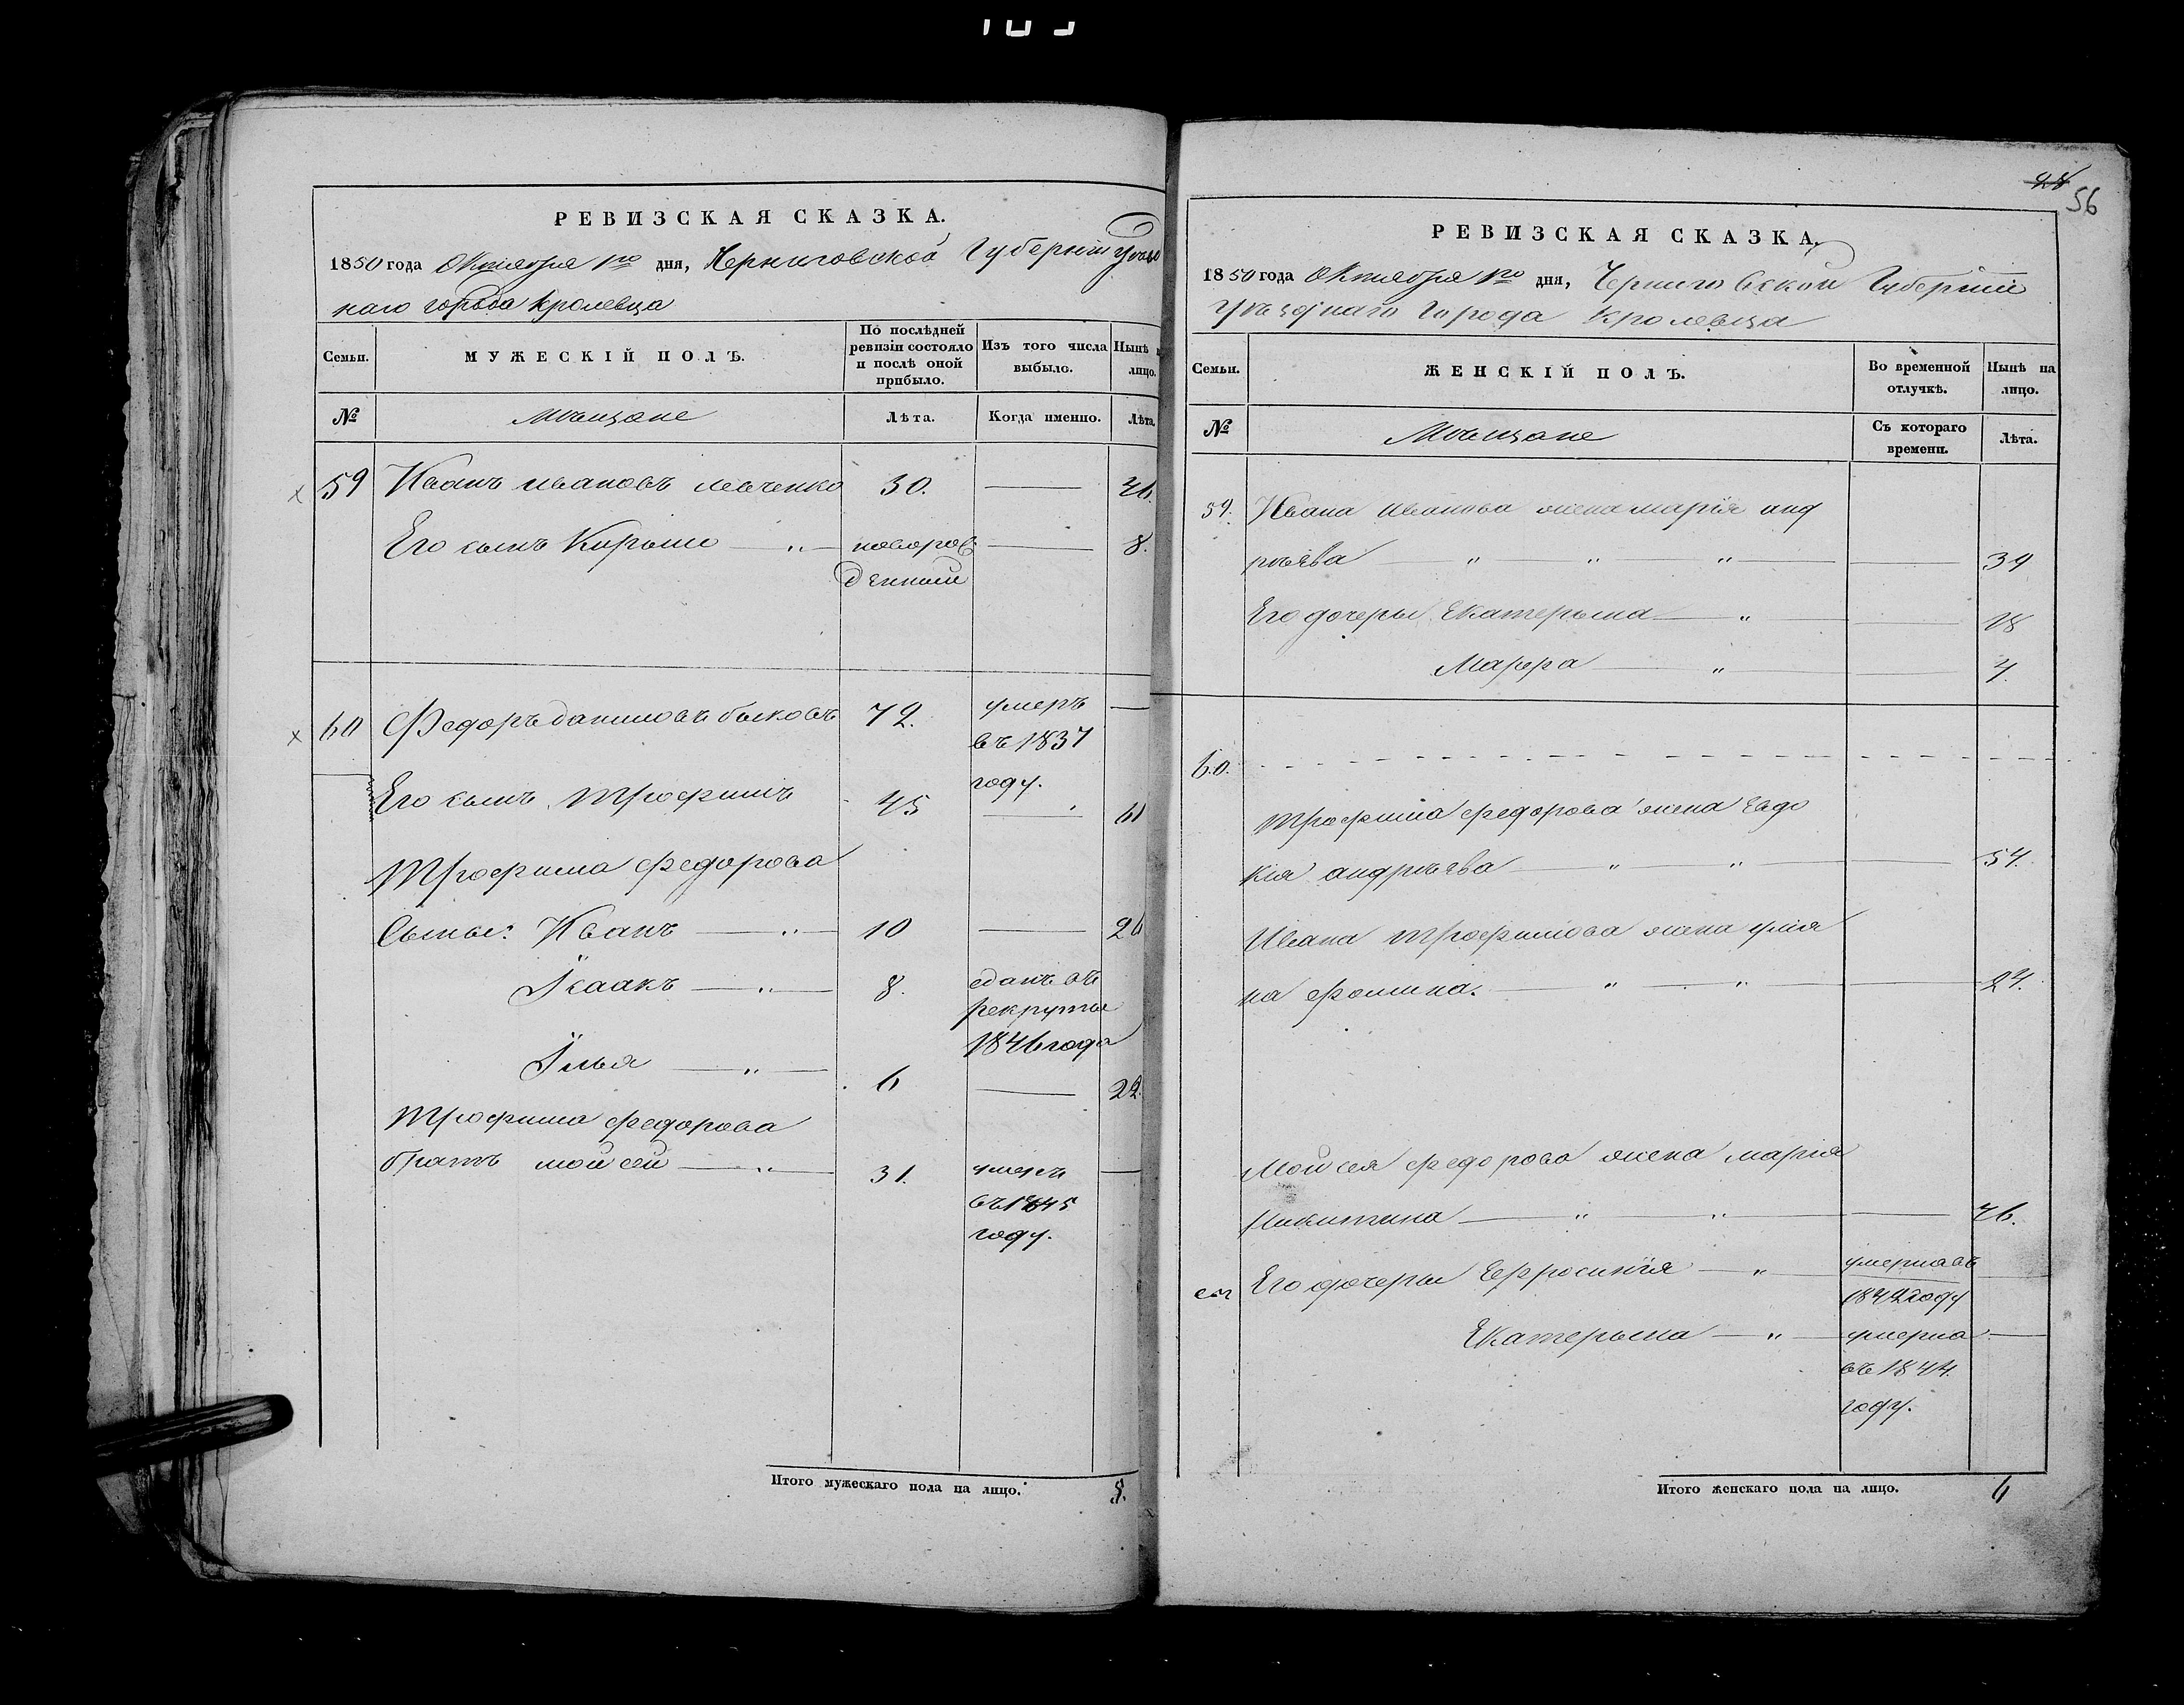 56
РЕВИЗСКАЯ СКАЗКА.
1850 года Октября 1го дня, Черниговской Губерніи Уѣзд
наго города Кролевца
Семьи.
МУЖЕСКІЙ ПОЛЪ.
По послѣдней ревизіи состояло и послѣ оной прибыло.
Изъ того числа выбыло.
Нынѣ на лицо.
№
Мѣщане
Лѣта.
Когда именно.
Лѣта.
59 Иванъ ивановъ левченко 30. — 46.
Его сынъ Кирыло — „ — новорож — 8.
денный
60 Федоръ даниловъ быковъ 72. умеръ —
въ 1837
году.
Его сынъ Трофимъ 45 — 61
Трофима федорова
Сыны: Иванъ — „ — 10 — 26
Ісаакъ — „ — 8. сданъ въ
рекруты
1846 года
Ілья — „ — 6 — 22.
Трофима федорова
братъ мойсей — „ — 31. умеръ —
въ 1845
году.
Итого мужескаго пола на лицо. 5.
РЕВИЗСКАЯ СКАЗКА.
1850 года Октября 1го дня, Черниговской Губерніи
Уѣзднаго города Кролевца
Семьи.
ЖЕНСКІЙ ПОЛЪ.
Во временной отлучкѣ.
Нынѣ на лицо.
№
Мѣщане
Съ котораго времени.
Лѣта.
59. Ивана иванова жена марія анд
рѣева — „ — „ — „ — 39
Его дочеры Екатерына — „ — 18
Марфа — „ — 4.
60. - - - - - - - -
Трофима федорова жена Евдо
кія андрѣева — „ — „ — 54.
Ивана трофимова жена улія
на фомина. — „ — „ — 24.
Мойсея федорова жена марія
Никитина — „ — „ — 46.
Его дочеры Ефросинія — „ — умерла въ
1842 году
Екатерына — „ — умерла —
въ 1844.
году.
Итого женскаго пола на лицо. 6